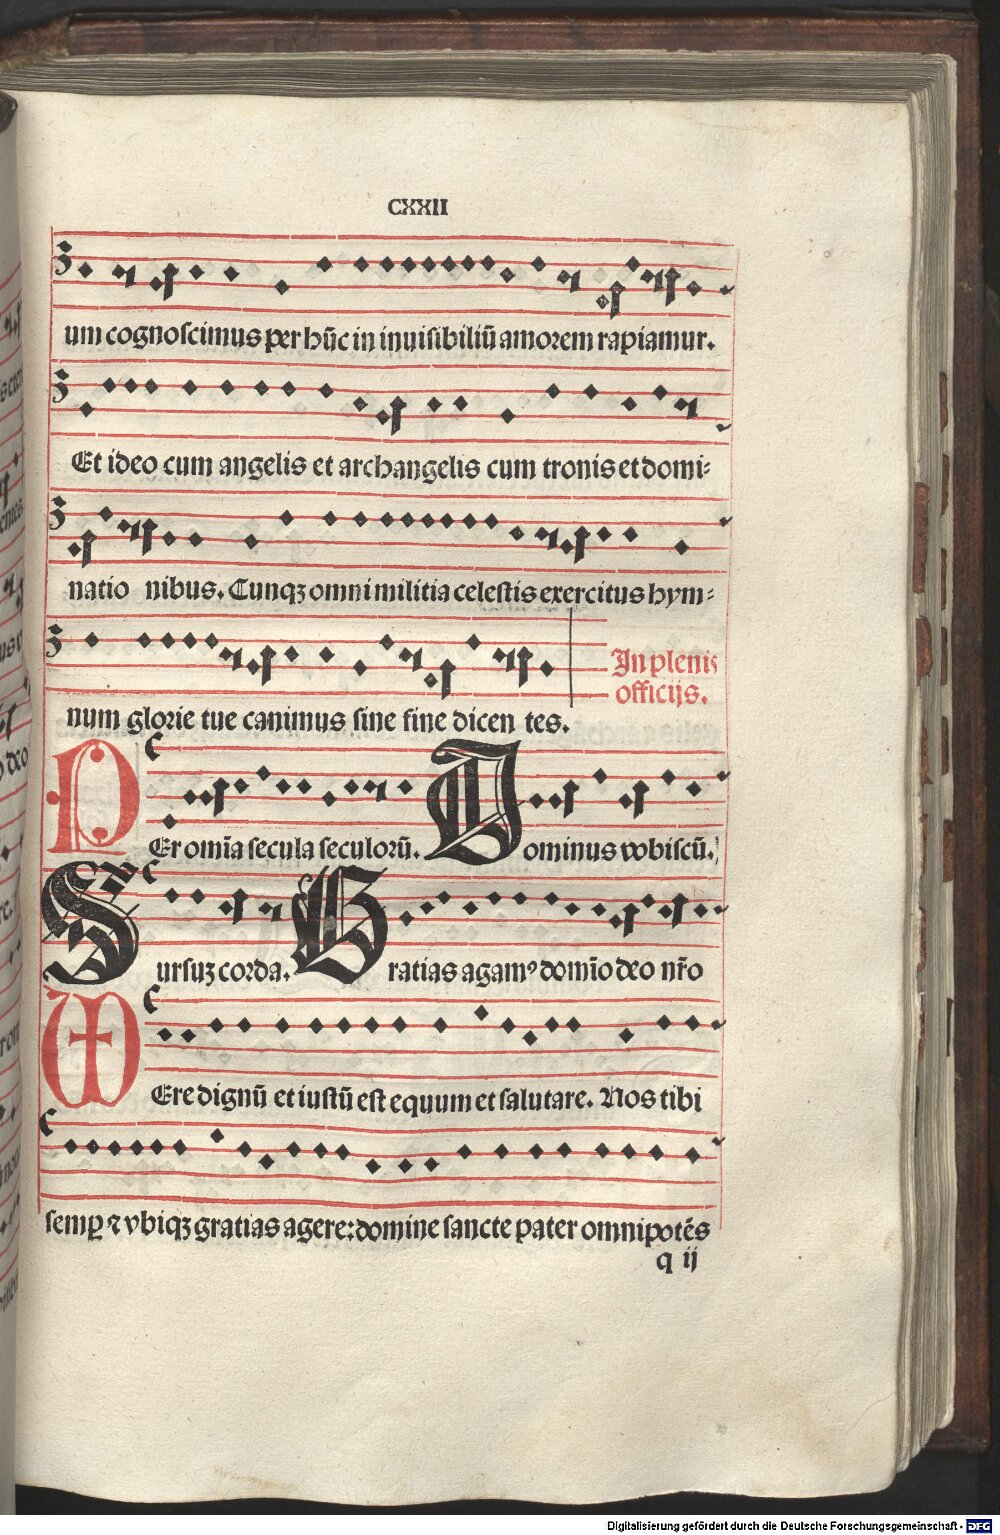 CXXII
um cognoscimus per hūc in inuisibiliū amorem rapiamur.
Et ideo cum angelis et archangelis cum tronis et domi⸗
natio nibus. Cunqꝫ omni militia celestis exercitus hym⸗
num glorie tue canimus sine fine dicen tes.
In plenis
officijs.
PEr om̄ia secula seculorū. Dominus vobiscū.
Sursuꝫ corda. Gratias agamꝰ domīo deo nr̄o
VEre dignū et iustū est equum et salutare. Nos tibi
semꝑ ⁊ vbiqꝫ gratias agere: domine sancte pater omnipotēs
q ij
Digitalisierung gefördert durch die Deutsche Forschungsgemeinschaft - DFG